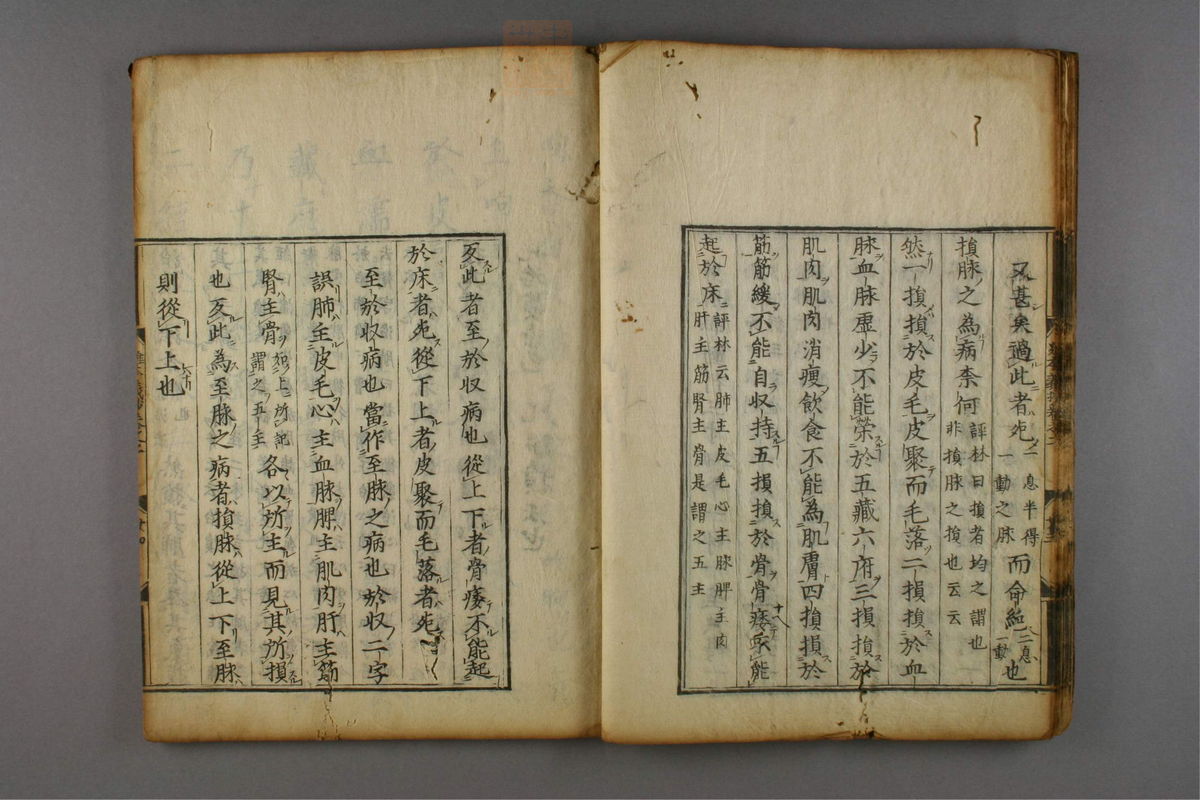 又甚矣過此者死一息半得一動之脉而命絶二息一動也
損脉之為病柰何評林曰損者均之謂也非損脉之損也云云
然一損損於皮毛皮聚而毛落二損損於血
脉血脉虚少不能榮於五藏六府三損損於
肌肉肌肉消痩飲食不能為肌膚四損損於
筋筋緩不能自収持五損損於骨骨痿不能
起於床評林云肺主皮毛心主脉脾主肉肝主筋腎主骨是謂之五主
反此者至於収病也從上下者骨痿不能起
於床者死從下上者皮聚而毛落者死
至於収病也當作至脉之病也於収二字
誤肺主皮毛心主血脉脾主肌肉肝主筋
腎主骨如上所記謂之五主各以所主而見其所損
也反此為至脉之病者損脉從上下至脉
則從下上也